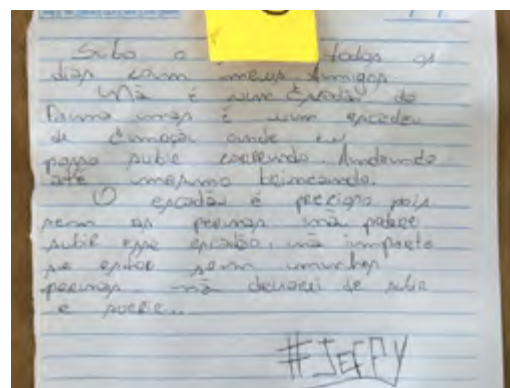 Subo o todos os
dias com meus Amigos
Nã é um Escadão de
mas é um escadão
de Emoção onde eu
posso subir correndo. Andando
até mesmo brincando.
O escadão é pois
sem as pernas nã
subir esse escadão, nã importa
se estou sem
pernas nã deixarei de subir
e
#JEFFY